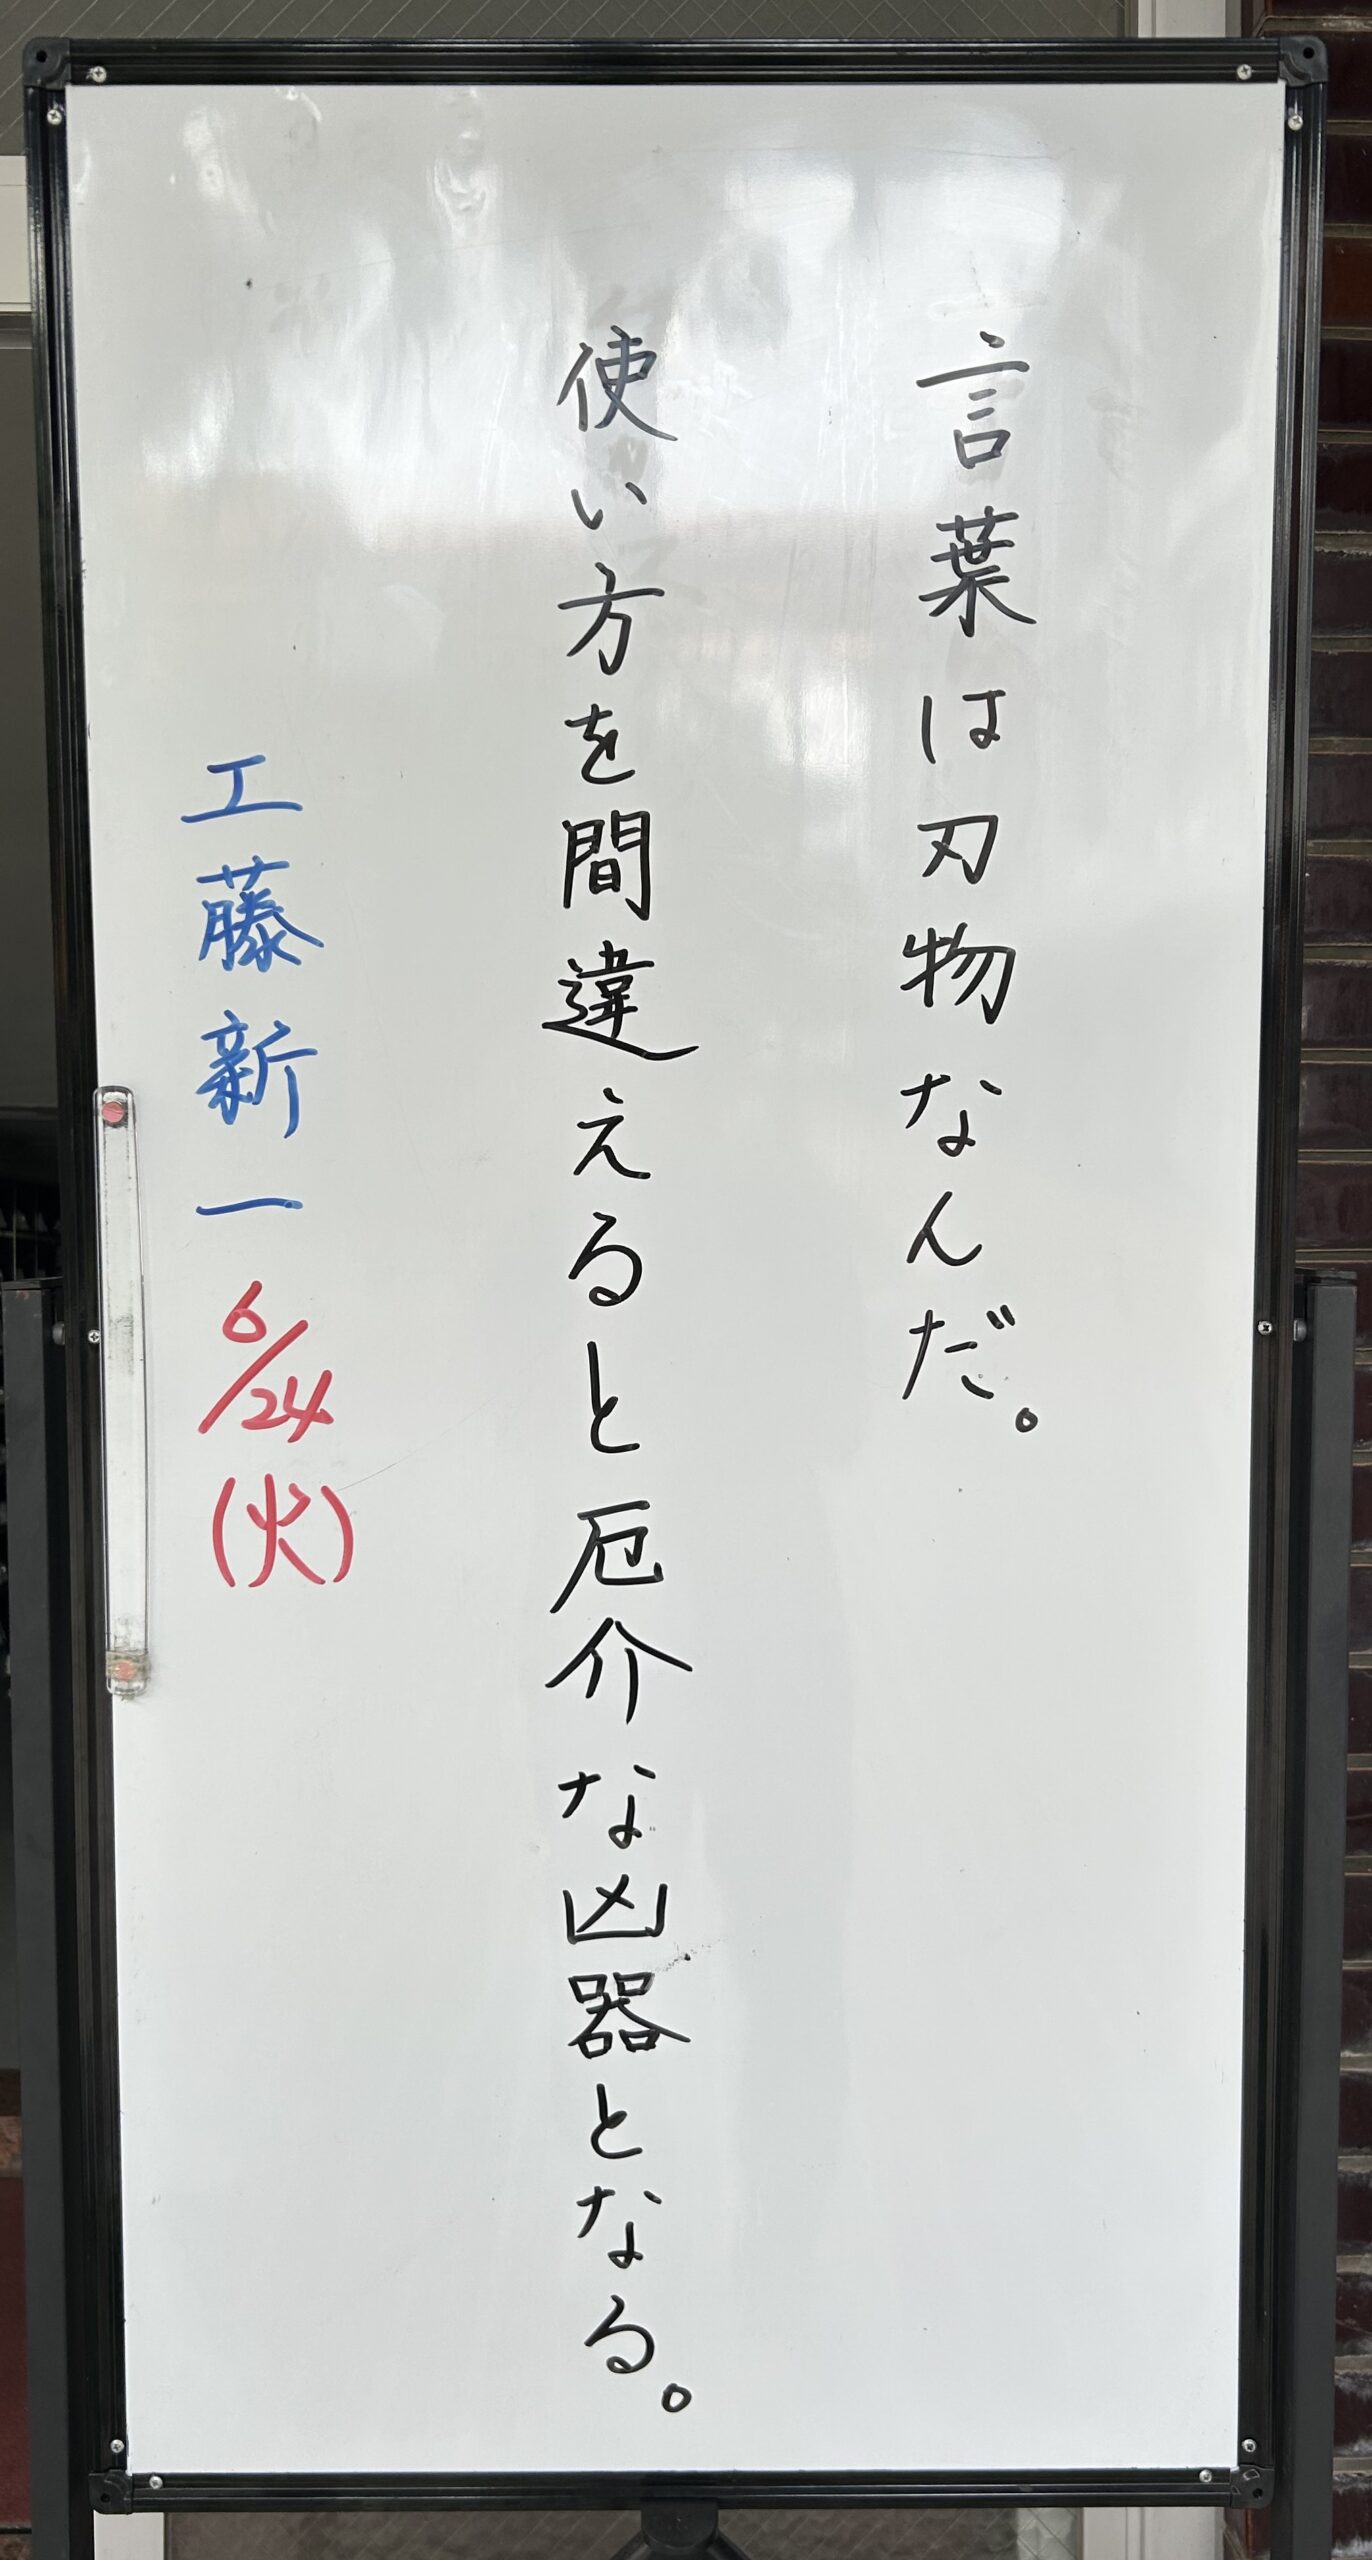 言葉は刃物なんだ。
使い方を間違えると厄介な凶器となる。
工藤新一 6/24(火)